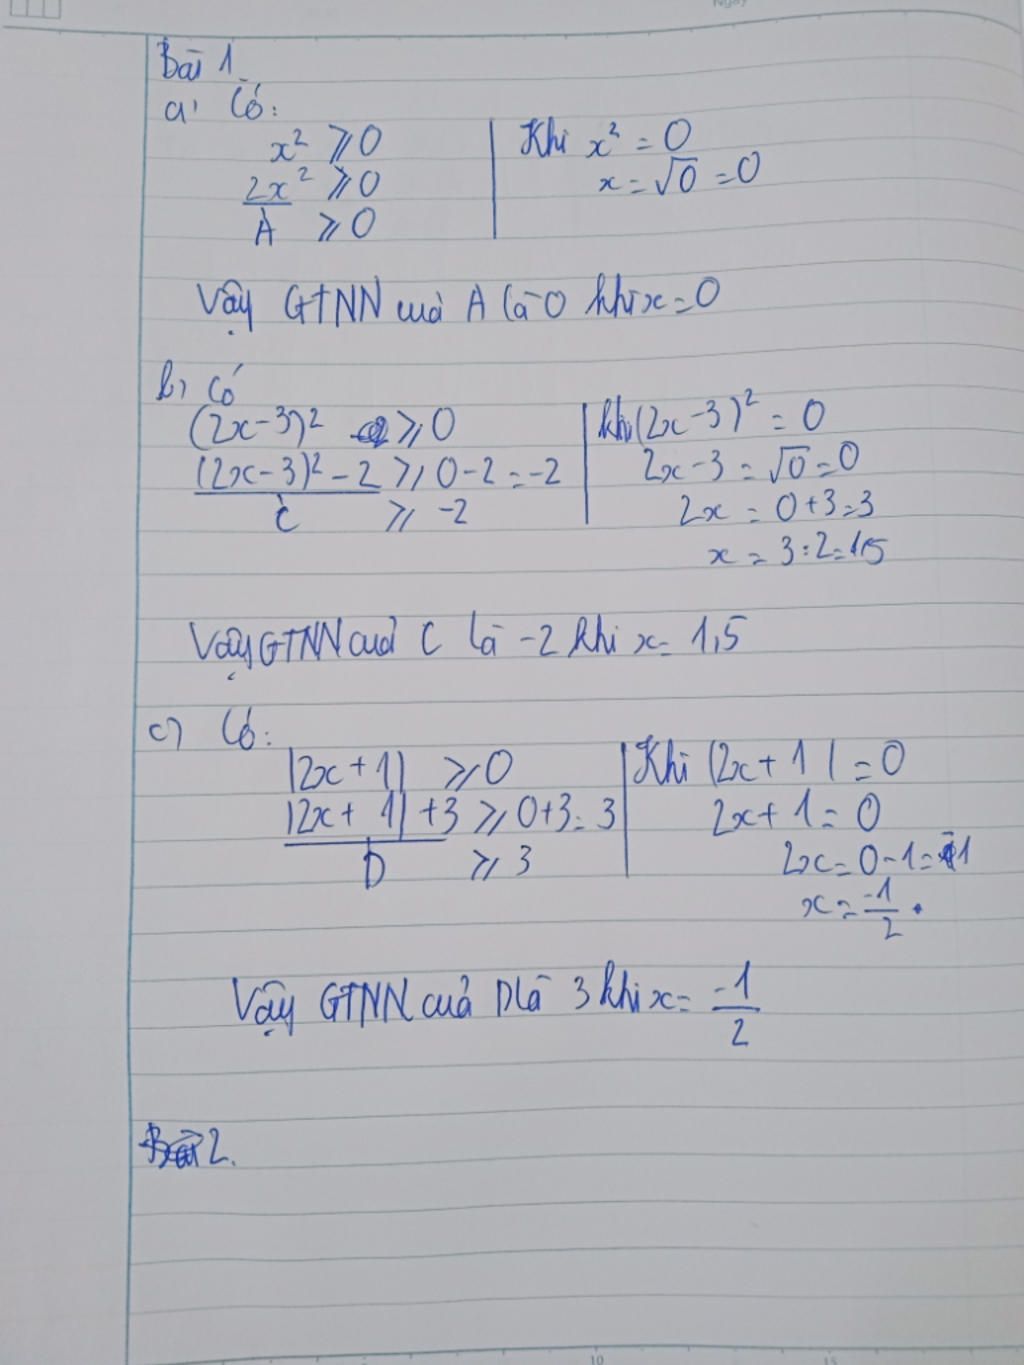 Bài 1
a, Có:
x² ⩾ 0
2x² ⩾ 0
A ⩾ 0
Khi x² = 0
x = √0 = 0
Vậy GTNN của A là 0 khi x = 0
b, Có
(2x-3)² ⩾ 0
(2x-3)² - 2 ⩾ 0-2 = -2
C ⩾ -2
khi (2x-3)² = 0
2x-3 = √0 = 0
2x = 0+3=3
x = 3:2=1,5
Vậy GTNN của C là -2 khi x = 1,5
c) Có:
|2x+1| ⩾ 0
|2x+1| +3 ⩾ 0+3=3
D ⩾ 3
Khi |2x+1| = 0
2x+1 = 0
2x = 0-1=-1
x = -1/2
Vậy GTNN của D là 3 khi x = -1/2
Bài 2.
10
15